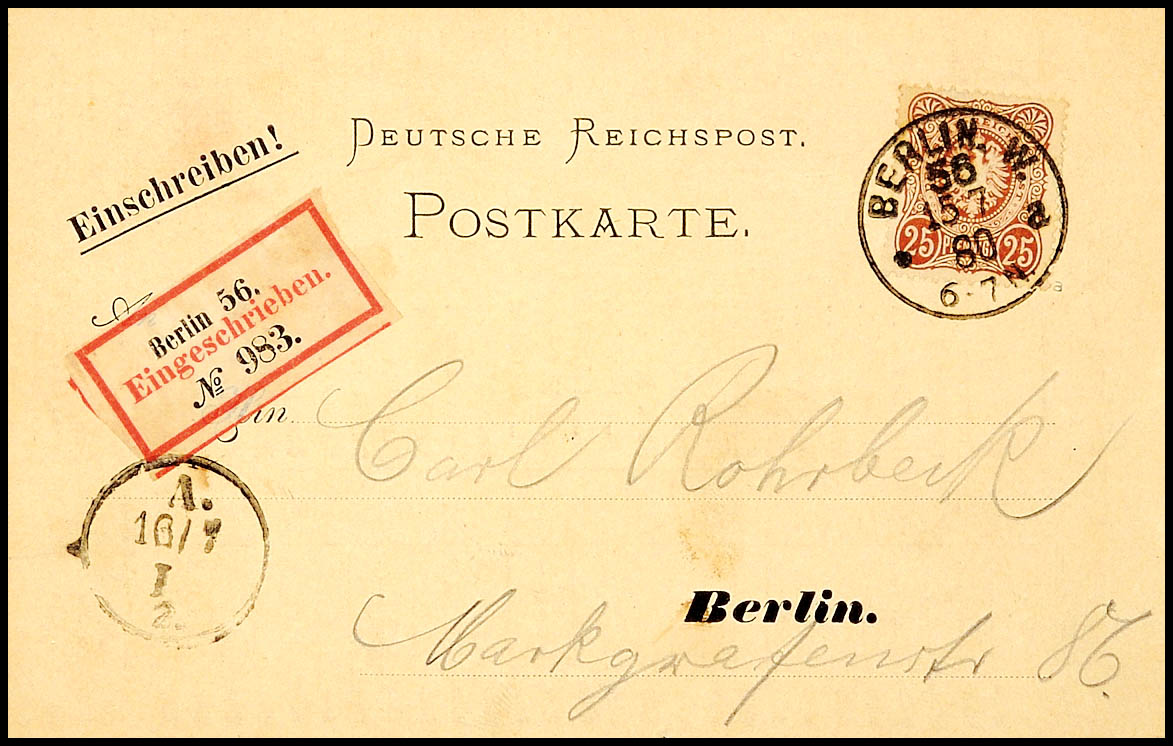 DEUTSCHE REICHSPOST.
POSTKARTE.
Einschreiben!
BERLIN. W.
56
15 7
80
a
6-7N
25 PFENNIG 25
Berlin 56.
Eingeschrieben.
№ 983.
An
Carl Rohrbeck
A.
16/7
I
2.
Berlin.
Markgrafenstr 86.